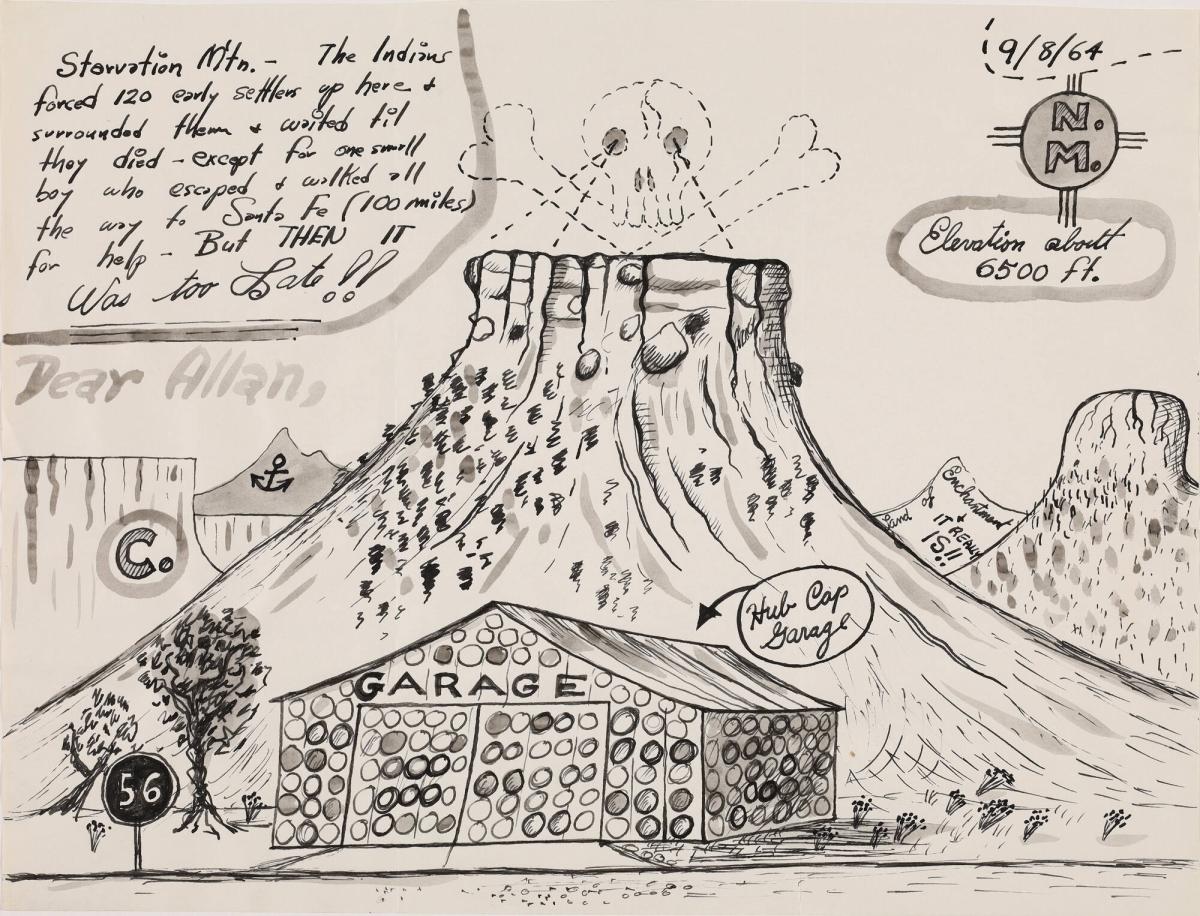 Starvation Mtn. - The Indians
forced 120 early settlers up here &
surrounded them & waited til
they died - except for one small
boy who escaped & walked all
the way to Santa Fe (100 miles)
for help - But THEN IT
Was too Late!!
9/8/64
N.
M.
Elevation about
6500 ft.
Dear Allan,
C.
Land
of
Enchantment
&
IT REALLY
IS!!
Hub Cap
Garage
GARAGE
56